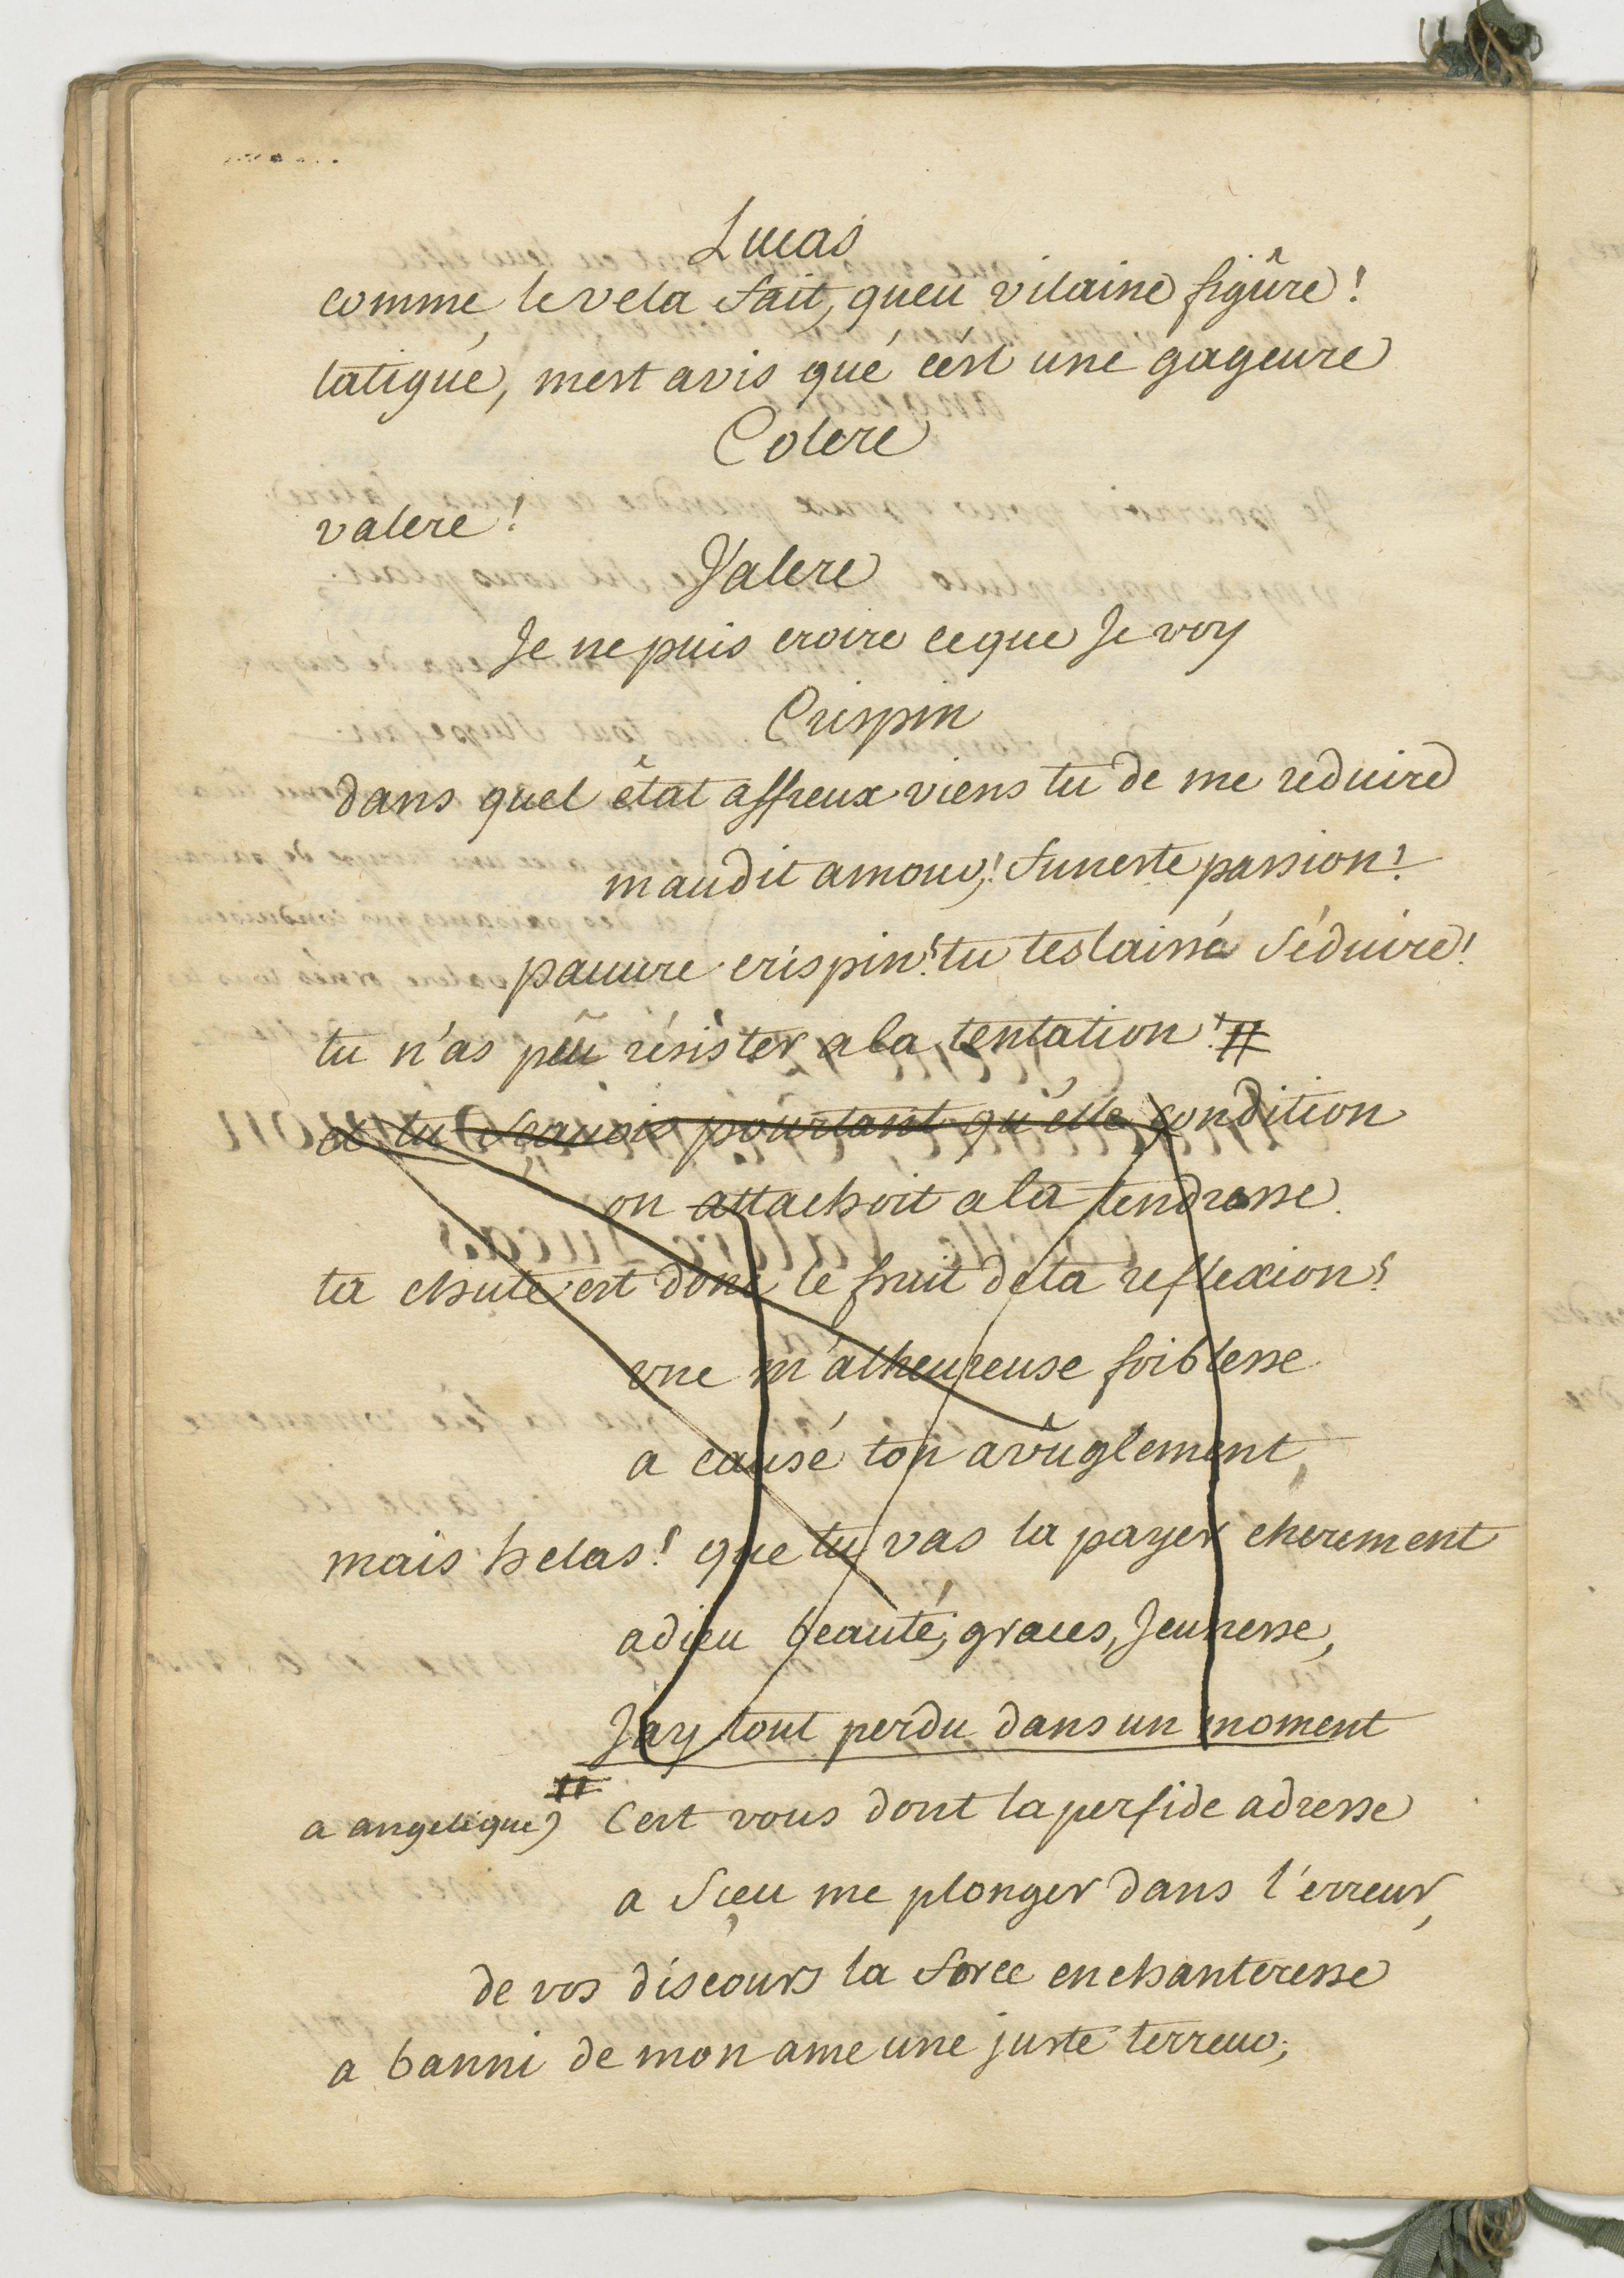 Lucas
comme le vela fait, queu vilaine figûre!
tatigué, mest avis qué c'est une gageure
Colere
valere!
Valere
Je ne puis croire ceque Je voy
Crispin
dans quel êtat affreux viens tu de me reduire
maudit amour! funeste passion!
pauure crispin! tu tes laissé séduire!
tu n'as pû résister a la tentation! #
et tu scauois pourtant qu'elle condition
on attachoit a la tendresse
ta chute est donc le fruit de ta reflexion!
une m'alheureuse foiblesse
a causé ton avûglement,
mais helas! que tu vas la payer cherement
adieu beauté, graces, Jeunesse,
Jay tout perdu dans un moment
#
a angelique) Cest vous dont la perfide adresse
a sçeu me plonger dans l'erreur,
de vos discours la force enchanteresse
a banni de mon ame une juste terreur;